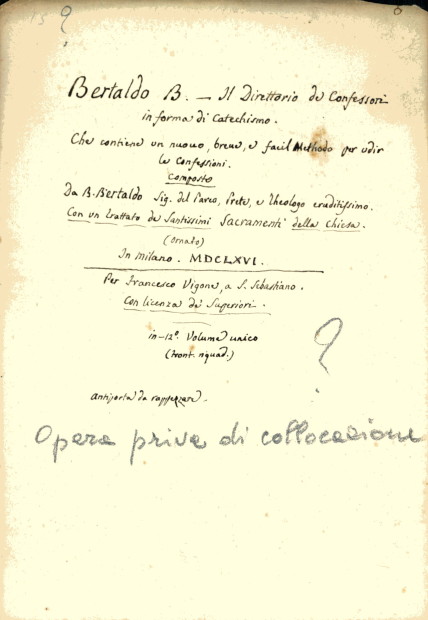 15 ?
6
Bertaldo B. — Il Direttorio de Confessori
in forma di Catechismo.
Che contiene un nuouo, breue, e facil Methodo per udir
le Confessioni.
Composto
Da B. Bertaldo Sig. del Parco, Prete, e Theologo eruditissimo.
Con un trattato de Santissimi Sacramenti della Chiesa.
(ornato)
In Milano. MDCLXVI.
Per Francesco Vigone, a S. Sebastiano.
Con licenza de' Superiori.
in-12º. Volume unico
(front. riquad.)
?
Antiporta da rappezzare.
Opera priva di collocazione